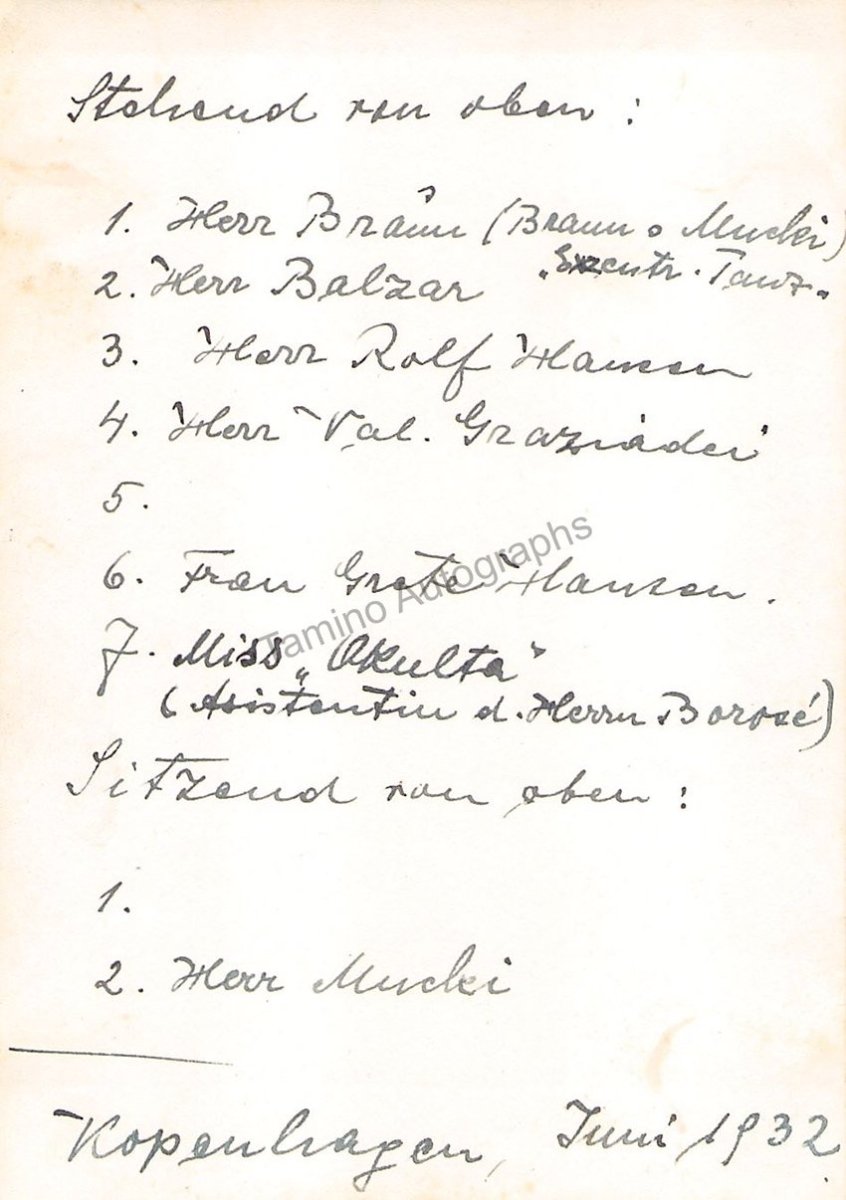 Stehend von oben:
1. Herr Braun (Braun o Mucki)
2. Herr Balzar „Excentr. Tanz"
3. Herr Rolf Hansen
4. Herr Val. Graziadei
5.
6. Frau Grete Hansen.
7. Miss „Okulta"
(Asistentin d. Herrn Borosé)
Sitzend von oben:
1.
2. Herr Mucki
Kopenhagen, Juni 1932
Tamino Autographs